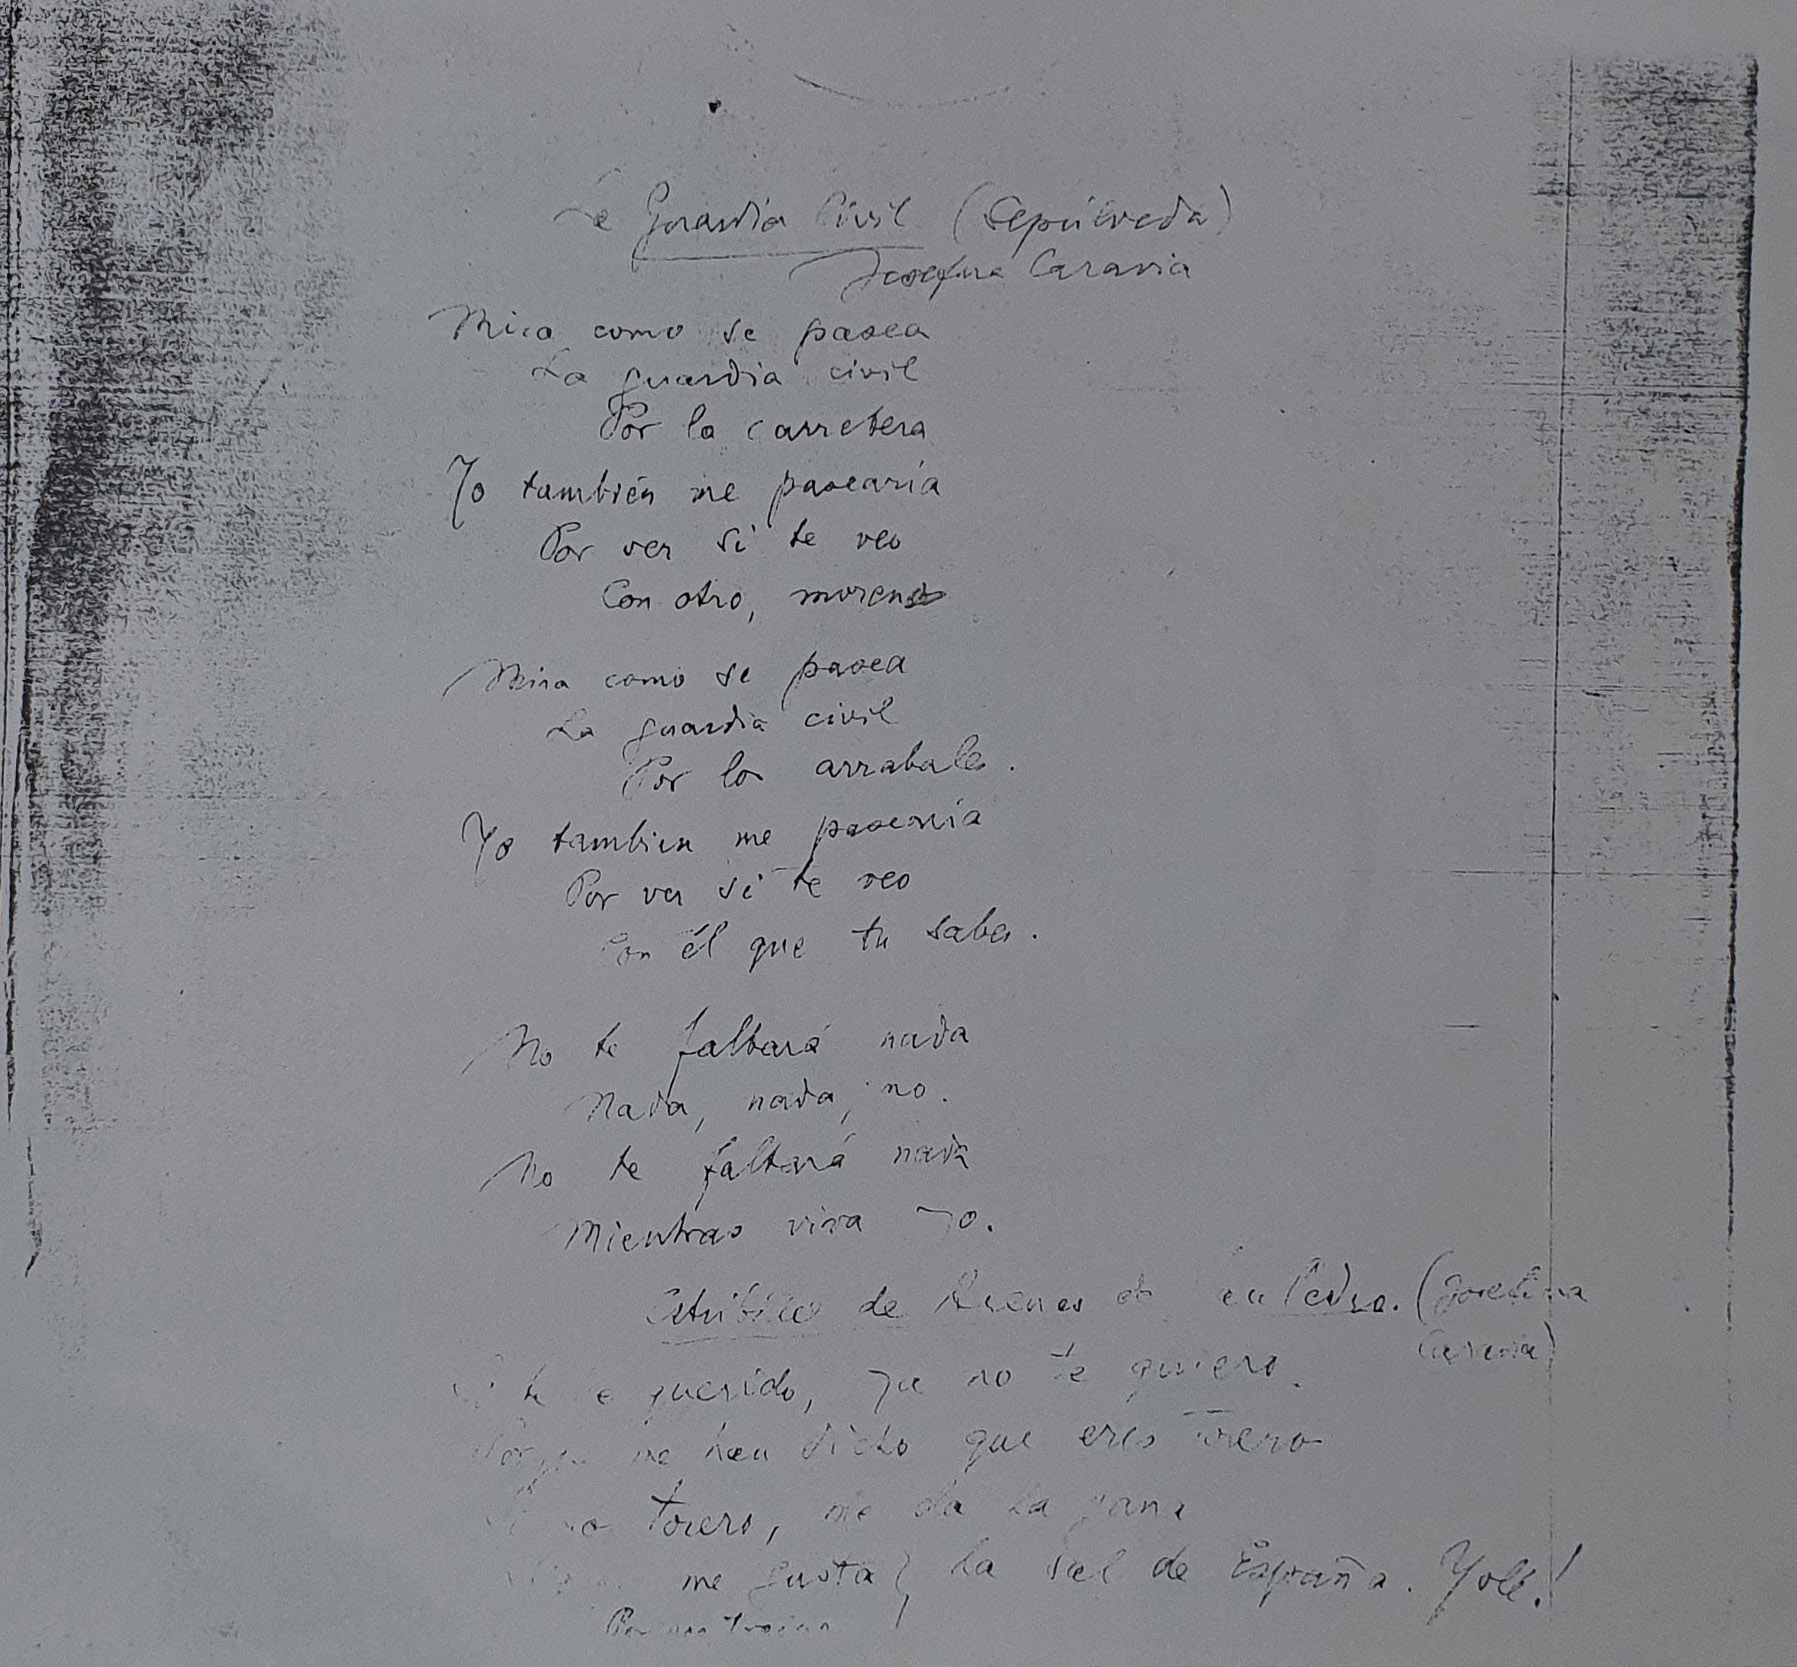 La Guardia Civil (Sepúlveda)
Josefina Caravia
Mira como se pasea
La guardia civil
Por la carretera
Yo también me pasearía
Por ver si te veo
Con otro, moreno
Mira como se pasea
La guardia civil
Por los arrabales.
Yo tambien me pasearía
Por ver si te veo
Con él que tu sabes.
No te faltará nada
Nada, nada, no.
No te faltará nada
Mientras viva yo.
Estribillo de Arenas de San Pedro. (Josefina
Caravia)
te he querido, ya no te quiero.
Porque me han dicho que eres torero
torero, me da la gana
me gusta la sal de España. Y olé!